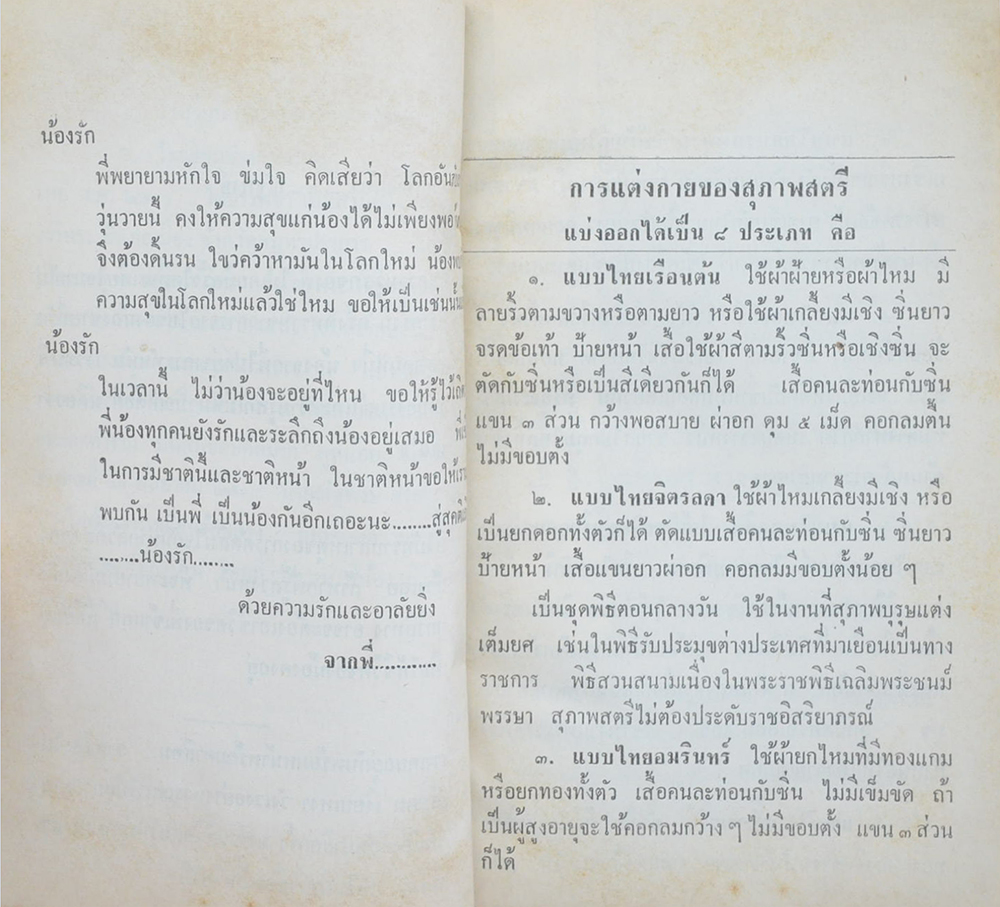 น้องรัก
พี่พยายามหักใจ ข่มใจ คิดเสียว่า โลกอัน
วุ่นวายนี้ คงให้ความสุขแก่น้องได้ไม่เพียงพอ
จึงต้องดิ้นรน ใขว่คว้าหามันในโลกใหม่ น้อง
ความสุขในโลกใหม่แล้วใช่ใหม ขอให้เป็นเช่นนั้น
น้องรัก
ในเวลานี้ ไม่ว่าน้องจะอยู่ที่ไหน ขอให้รู้ไว้
พี่น้องทุกคนยังรักและระลึกถึงน้องอยู่เสมอ
ในการมีชาตินี้และชาติหน้า ในชาติหน้าขอให้
พบกัน เป็นพี่ เป็นน้องกันอีกเถอะนะ........สู่
........น้องรัก........
ด้วยความรักและอาลัยยิ่ง
จากพี่...........
การแต่งกายของสุภาพสตรี
แบ่งออกได้เป็น ๘ ประเภท คือ
๑. แบบไทยเรือนต้น ใช้ผ้าฝ้ายหรือผ้าไหม มี
ลายริ้วตามขวางหรือตามยาว หรือใช้ผ้าเกลี้ยงมีเชิง ซิ่นยาว
จรดข้อเท้า ป้ายหน้า เสื้อใช้ผ้าสีตามริ้วซิ่นหรือเชิงซิ่น จะ
ตัดกับซิ่นหรือเป็นสีเดียวกันก็ได้ เสื้อคนละท่อนกับซิ่น
แขน ๓ ส่วน กว้างพอสบาย ผ่าอก ดุม ๕ เม็ด คอกลมตื้น
ไม่มีขอบตั้ง
๒. แบบไทยจิตรลดา ใช้ผ้าไหมเกลี้ยงมีเชิง หรือ
เป็นยกดอกทั้งตัวก็ได้ ตัดแบบเสื้อคนละท่อนกับซิ่น ซิ่นยาว
ป้ายหน้า เสื้อแขนยาวผ่าอก คอกลมมีขอบตั้งน้อย ๆ
เป็นชุดพิธีตอนกลางวัน ใช้ในงานที่สุภาพบุรุษแต่ง
เต็มยศ เช่นในพิธีรับประมุขต่างประเทศที่มาเยือนเป็นทาง
ราชการ พิธีสวนสนามเนื่องในพระราชพิธีเฉลิมพระชนม์
พรรษา สุภาพสตรีไม่ต้องประดับราชอิสริยาภรณ์
๓. แบบไทยอมรินทร์ ใช้ผ้ายกไหมที่มีทองแกม
หรือยกทองทั้งตัว เสื้อคนละท่อนกับซิ่น ไม่มีเข็มขัด ถ้า
เป็นผู้สูงอายุจะใช้คอกลมกว้าง ๆ ไม่มีขอบตั้ง แขน ๓ ส่วน
ก็ได้